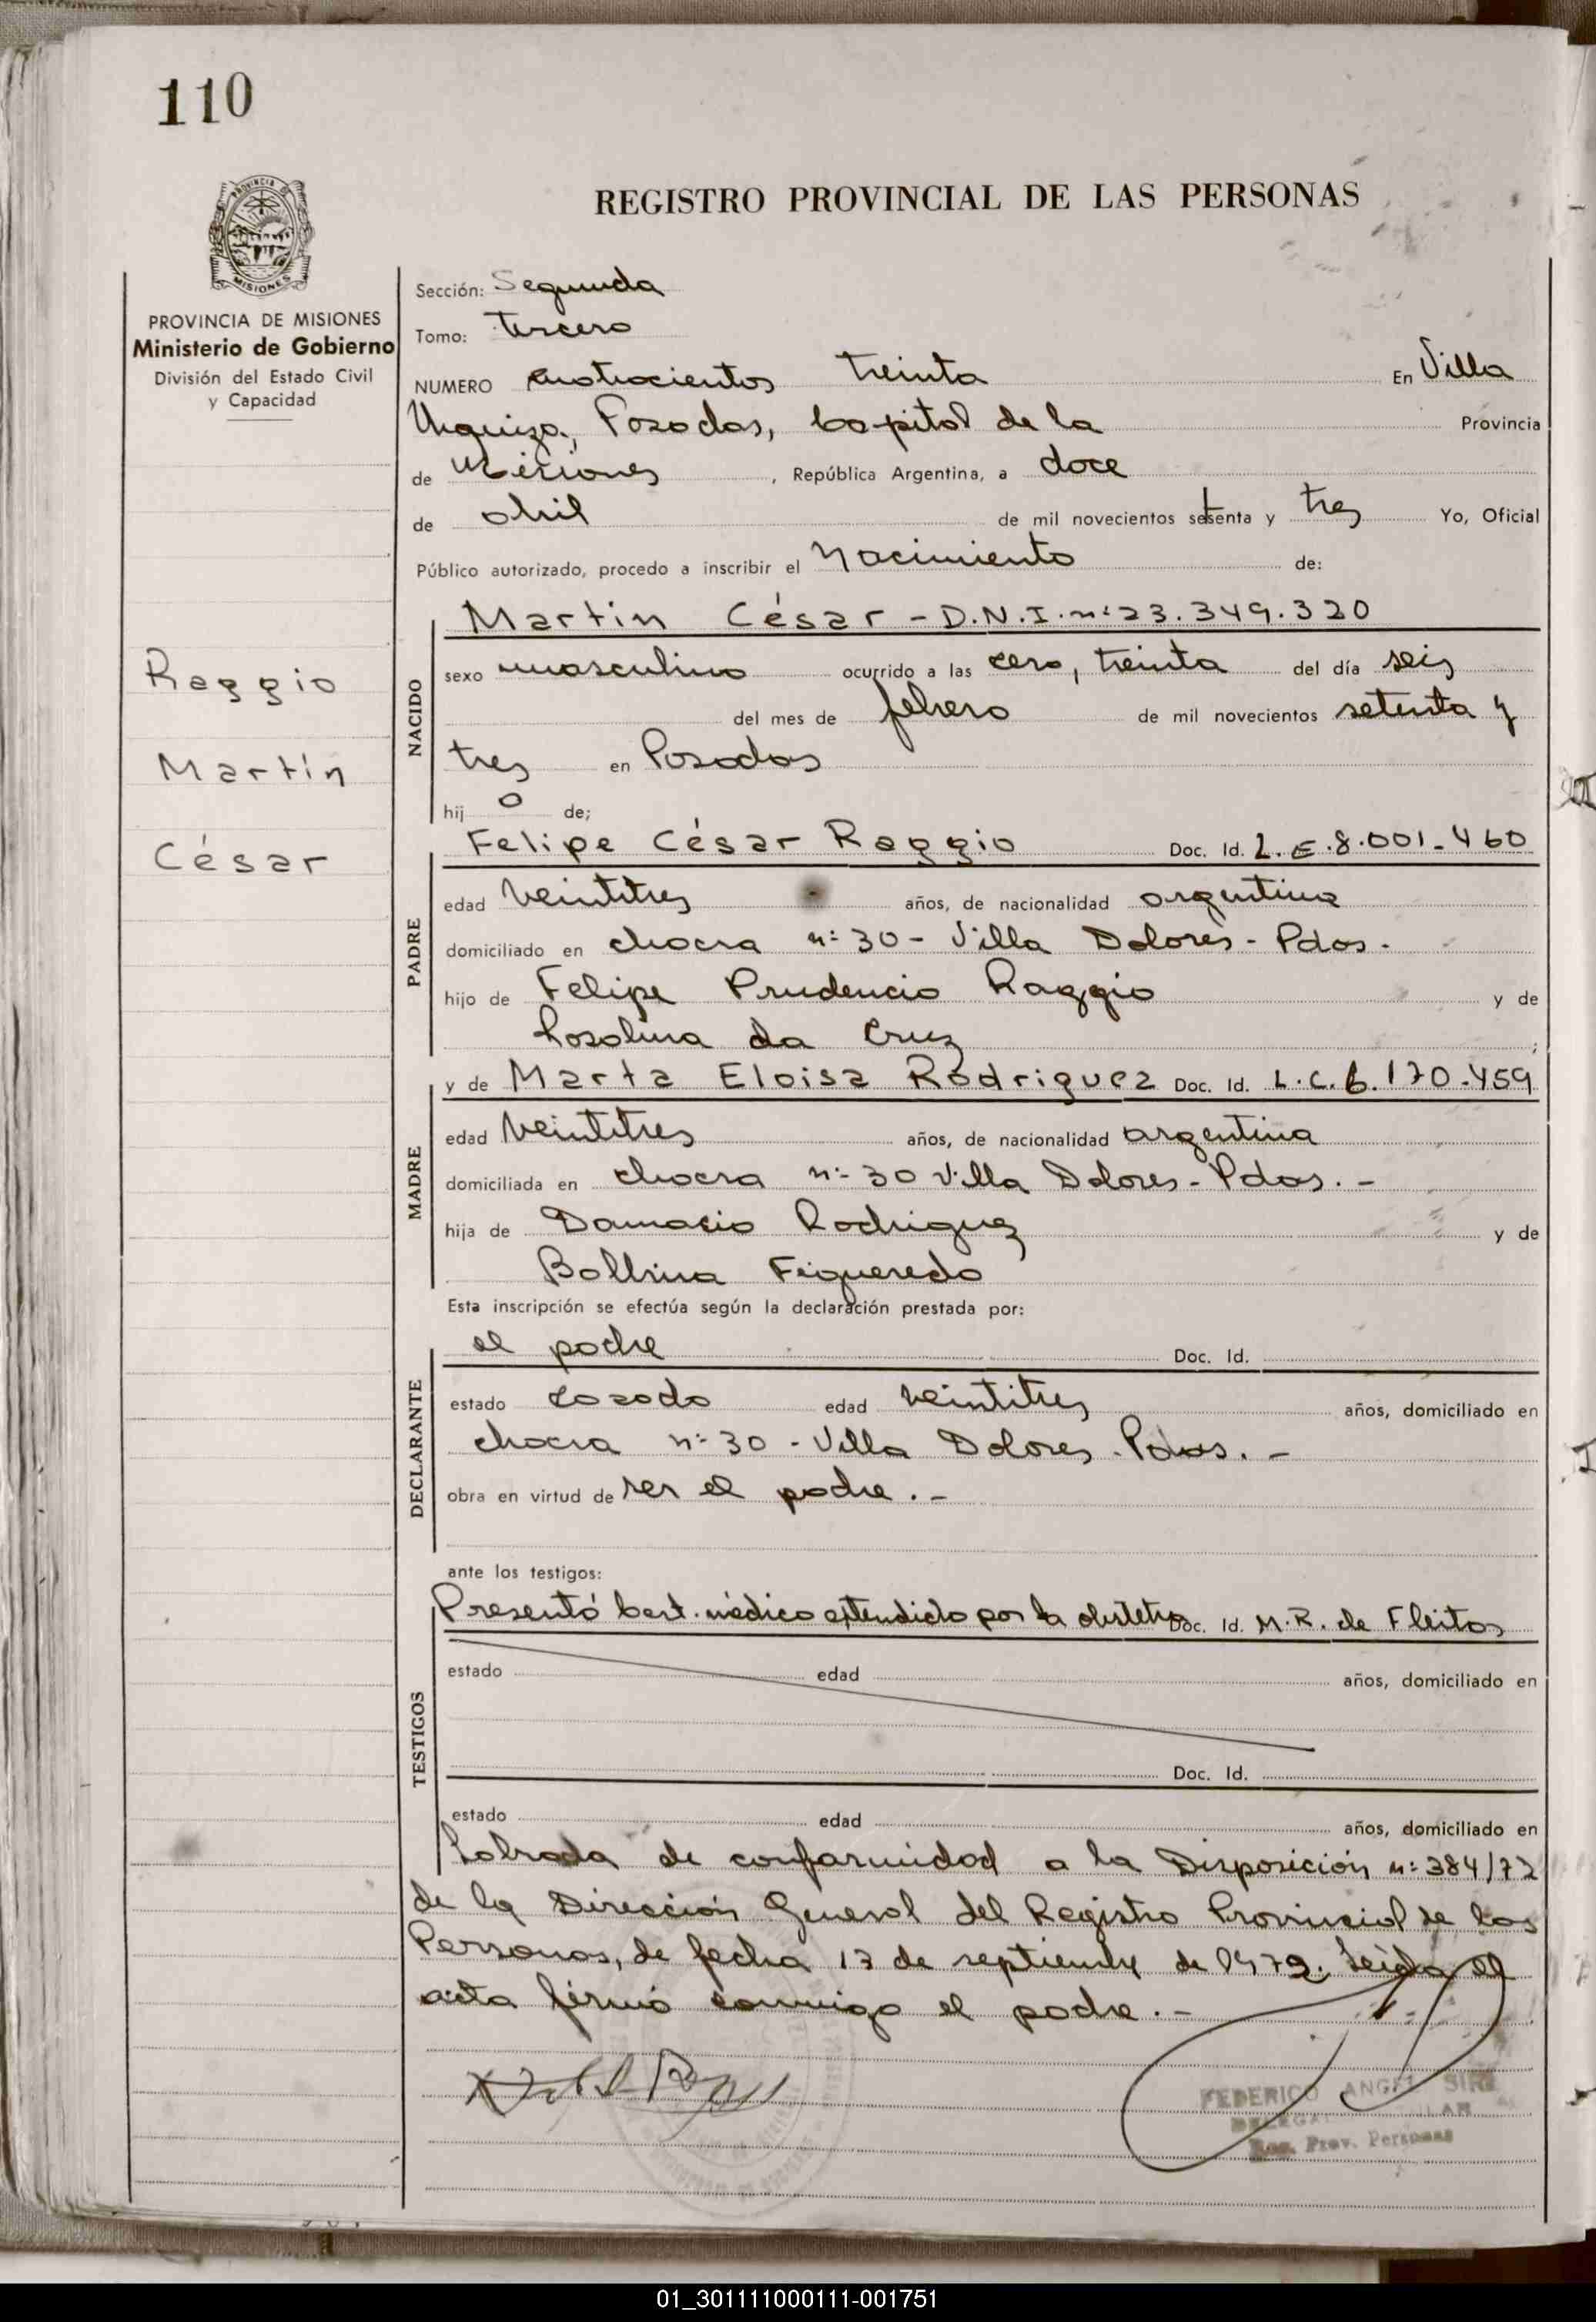 110
PROVINCIA DE
MISIONES
REGISTRO PROVINCIAL DE LAS PERSONAS
PROVINCIA DE MISIONES
Ministerio de Gobierno
División del Estado Civil
y Capacidad
Raggio
Martín
César
Sección: Segunda
Tomo: tercero
NUMERO cuatrocientos treinta En Villa
Urquiza, Posadas, Capital de la Provincia
de Misiones , República Argentina, a doce
de abril de mil novecientos setenta y tres Yo, Oficial
Público autorizado, procedo a inscribir el Nacimiento de:
NACIDO
Martin César - D.N.I. nº 23.349.320
sexo masculino ocurrido a las cero, treinta del día seis
del mes de febrero de mil novecientos setenta y
tres en Posadas
hij o de;
PADRE
Felipe César Raggio Doc. Id. L.E. 8.001.460
edad veintitres años, de nacionalidad argentina
domiciliado en chacra nº 30 - Villa Dolores - Pdas.
hijo de Felipe Prudencio Raggio y de
Rosalina da Cruz ;
MADRE
y de Marta Eloisa Rodriguez Doc. Id. L.C. 6.170.459
edad veintitres años, de nacionalidad argentina
domiciliada en chacra nº 30 Villa Dolores - Pdas. -
hija de Damacio Rodriguez y de
Balbina Figueredo
Esta inscripción se efectúa según la declaración prestada por:
DECLARANTE
el padre Doc. Id.
estado casado edad veintitres años, domiciliado en
chacra nº 30 - Villa Dolores - Pdas. -
obra en virtud de ser el padre. -
ante los testigos:
TESTIGOS
Presentó Cert. médico extendido por la Doc. Id. M.R. de Fleitas
estado edad años, domiciliado en
Doc. Id.
estado edad años, domiciliado en
Labrada de conformidad a la Disposición nº 384/72
de la Dirección General del Registro Provincial de las
Personas, de fecha 13 de septiembre de 1972. Leída el
acta firmó conmigo el padre. -
FEDERICO ANGEL
Reg. Prov. Personas
01_301111000111-001751